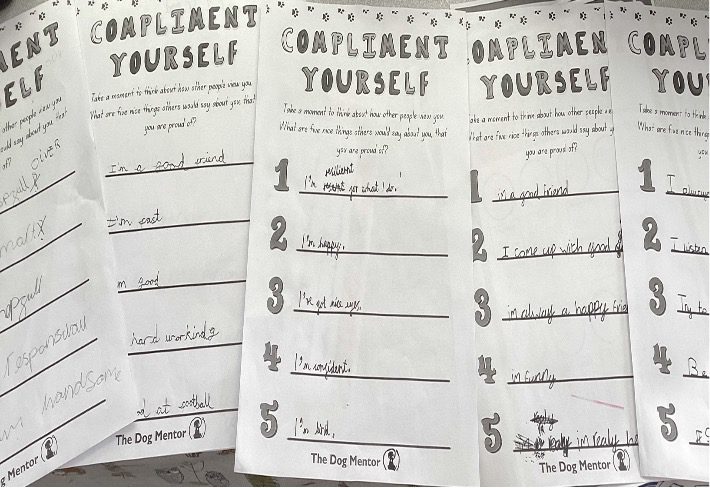 ENT
ELF
other people view you
would say about you that
of?
OLIVER
smart
responsball
handsome
g Mentor
COMPLIMENT
YOURSELF
Take a moment to think about how other people view you
What are five nice things others would say about you, that
you are proud of?
I'm a good friend
I'm fast
m good
hard working
at football
The Dog Mentor
COMPLIMENT
YOURSELF
Take a moment to think about how other people view you
What are five nice things others would say about you, that
you are proud of?
resilient
1 I'm for what I do.
2 I'm happy.
3 I've got nice eyes.
4 I'm confident.
5 I'm kind.
The Dog Mentor
OMPLIMEN
YOURSELF
ake a moment to think about how other people vie
hat are five nice things others would say about y
you are proud of?
1 im a good friend
2 I come up with good
3 im always a happy frie
4 im funny
5 realy im realy
The Dog Mentor
COMPL
YOU
Take a moment to think
What are five nice thing
you
1 I always
2 I listen
3 Try to
4 Be
5